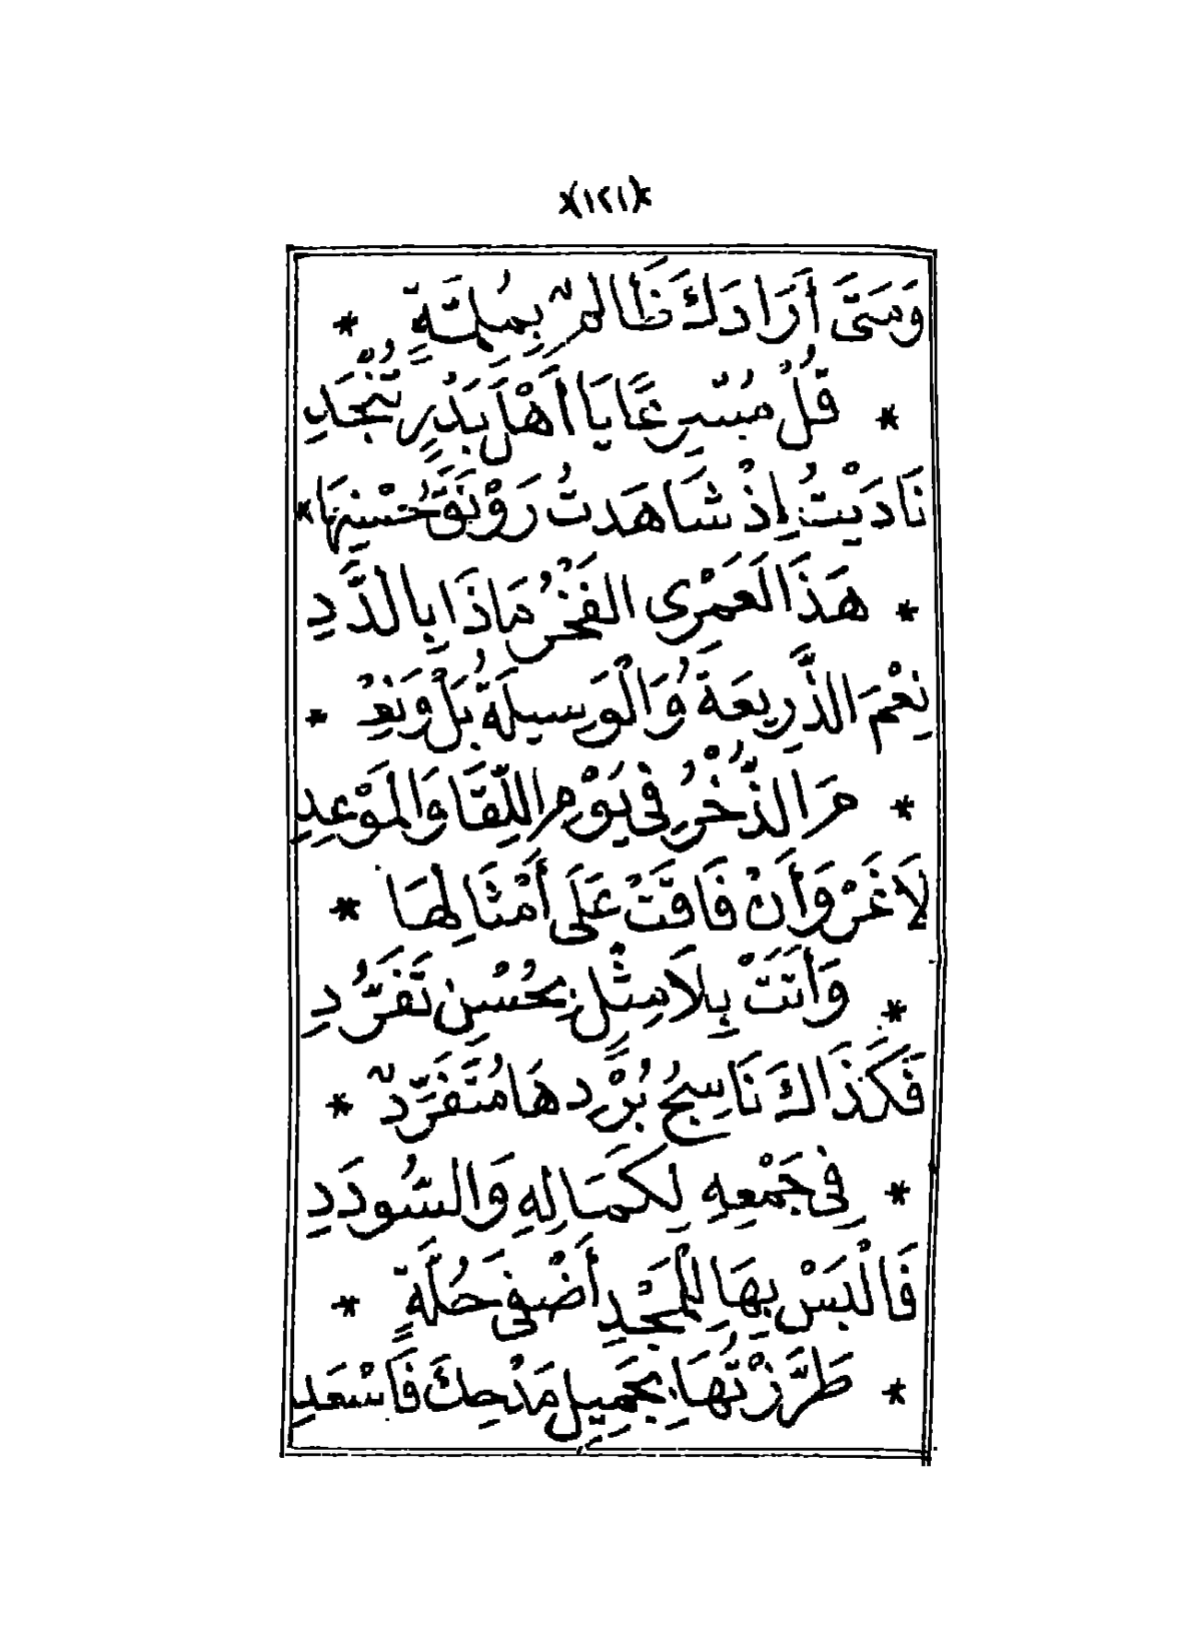 *(١٢١)*
وَمَتَى أَرَادَكَ ظَالِمٌ بِمُلِمَّةٍ *
* قُلْ مُسْرِعًا يَا أَهْلَ بَدْرٍ تُنْجَدِ
نَادَيْتُ إِذْ شَاهَدتُ رَوْنَقَ حُسْنِهَا *
* هَذَا لَعَمْرِى الفَخْرُ مَاذَا بِالدَّدِ
نِعْمَ الذَّرِيعَةُ وَالْوَسِيلَةُ بَلْ وَنِعْ *
* مَ الذُّخْرُ فِى يَوْمِ اللِّقَا وَالمَوْعِدِ
لَا غَرْوَ أَنْ فَاقَتْ عَلَى أَمْثَالِهَا *
* وَأَتَتْ بِلَا مِثْلٍ بِحُسْنِ تَفَرُّدِ
فَكَذَاكَ نَاسِجُ بُرْدِهَا مُتَفَرِّدٌ *
* فِى جَمْعِهِ لِكَمَالِهِ وَالسُّودَدِ
فَالْبَسْ بِهَا لِلْمَجْدِ أَضْفَى حُلَّةٍ *
* طَرَّزْتُهَا بِجَمِيلِ مَدْحِكَ فَاسْعَدِ